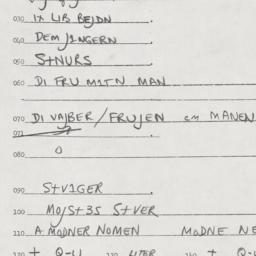 030 IX LIB BEJDN
040 DEM JINGERN
050 S+NURS
060 DI FRU M1TN MAN
070 DI VAJBER/FRUJEN cm MANEN
071
080 O
090 S+V1GER
100 MO/S+3S S+VER
110 A MODNER NOMEN MODNE NE
120 + Q-U 130 LITER 140 + Q-